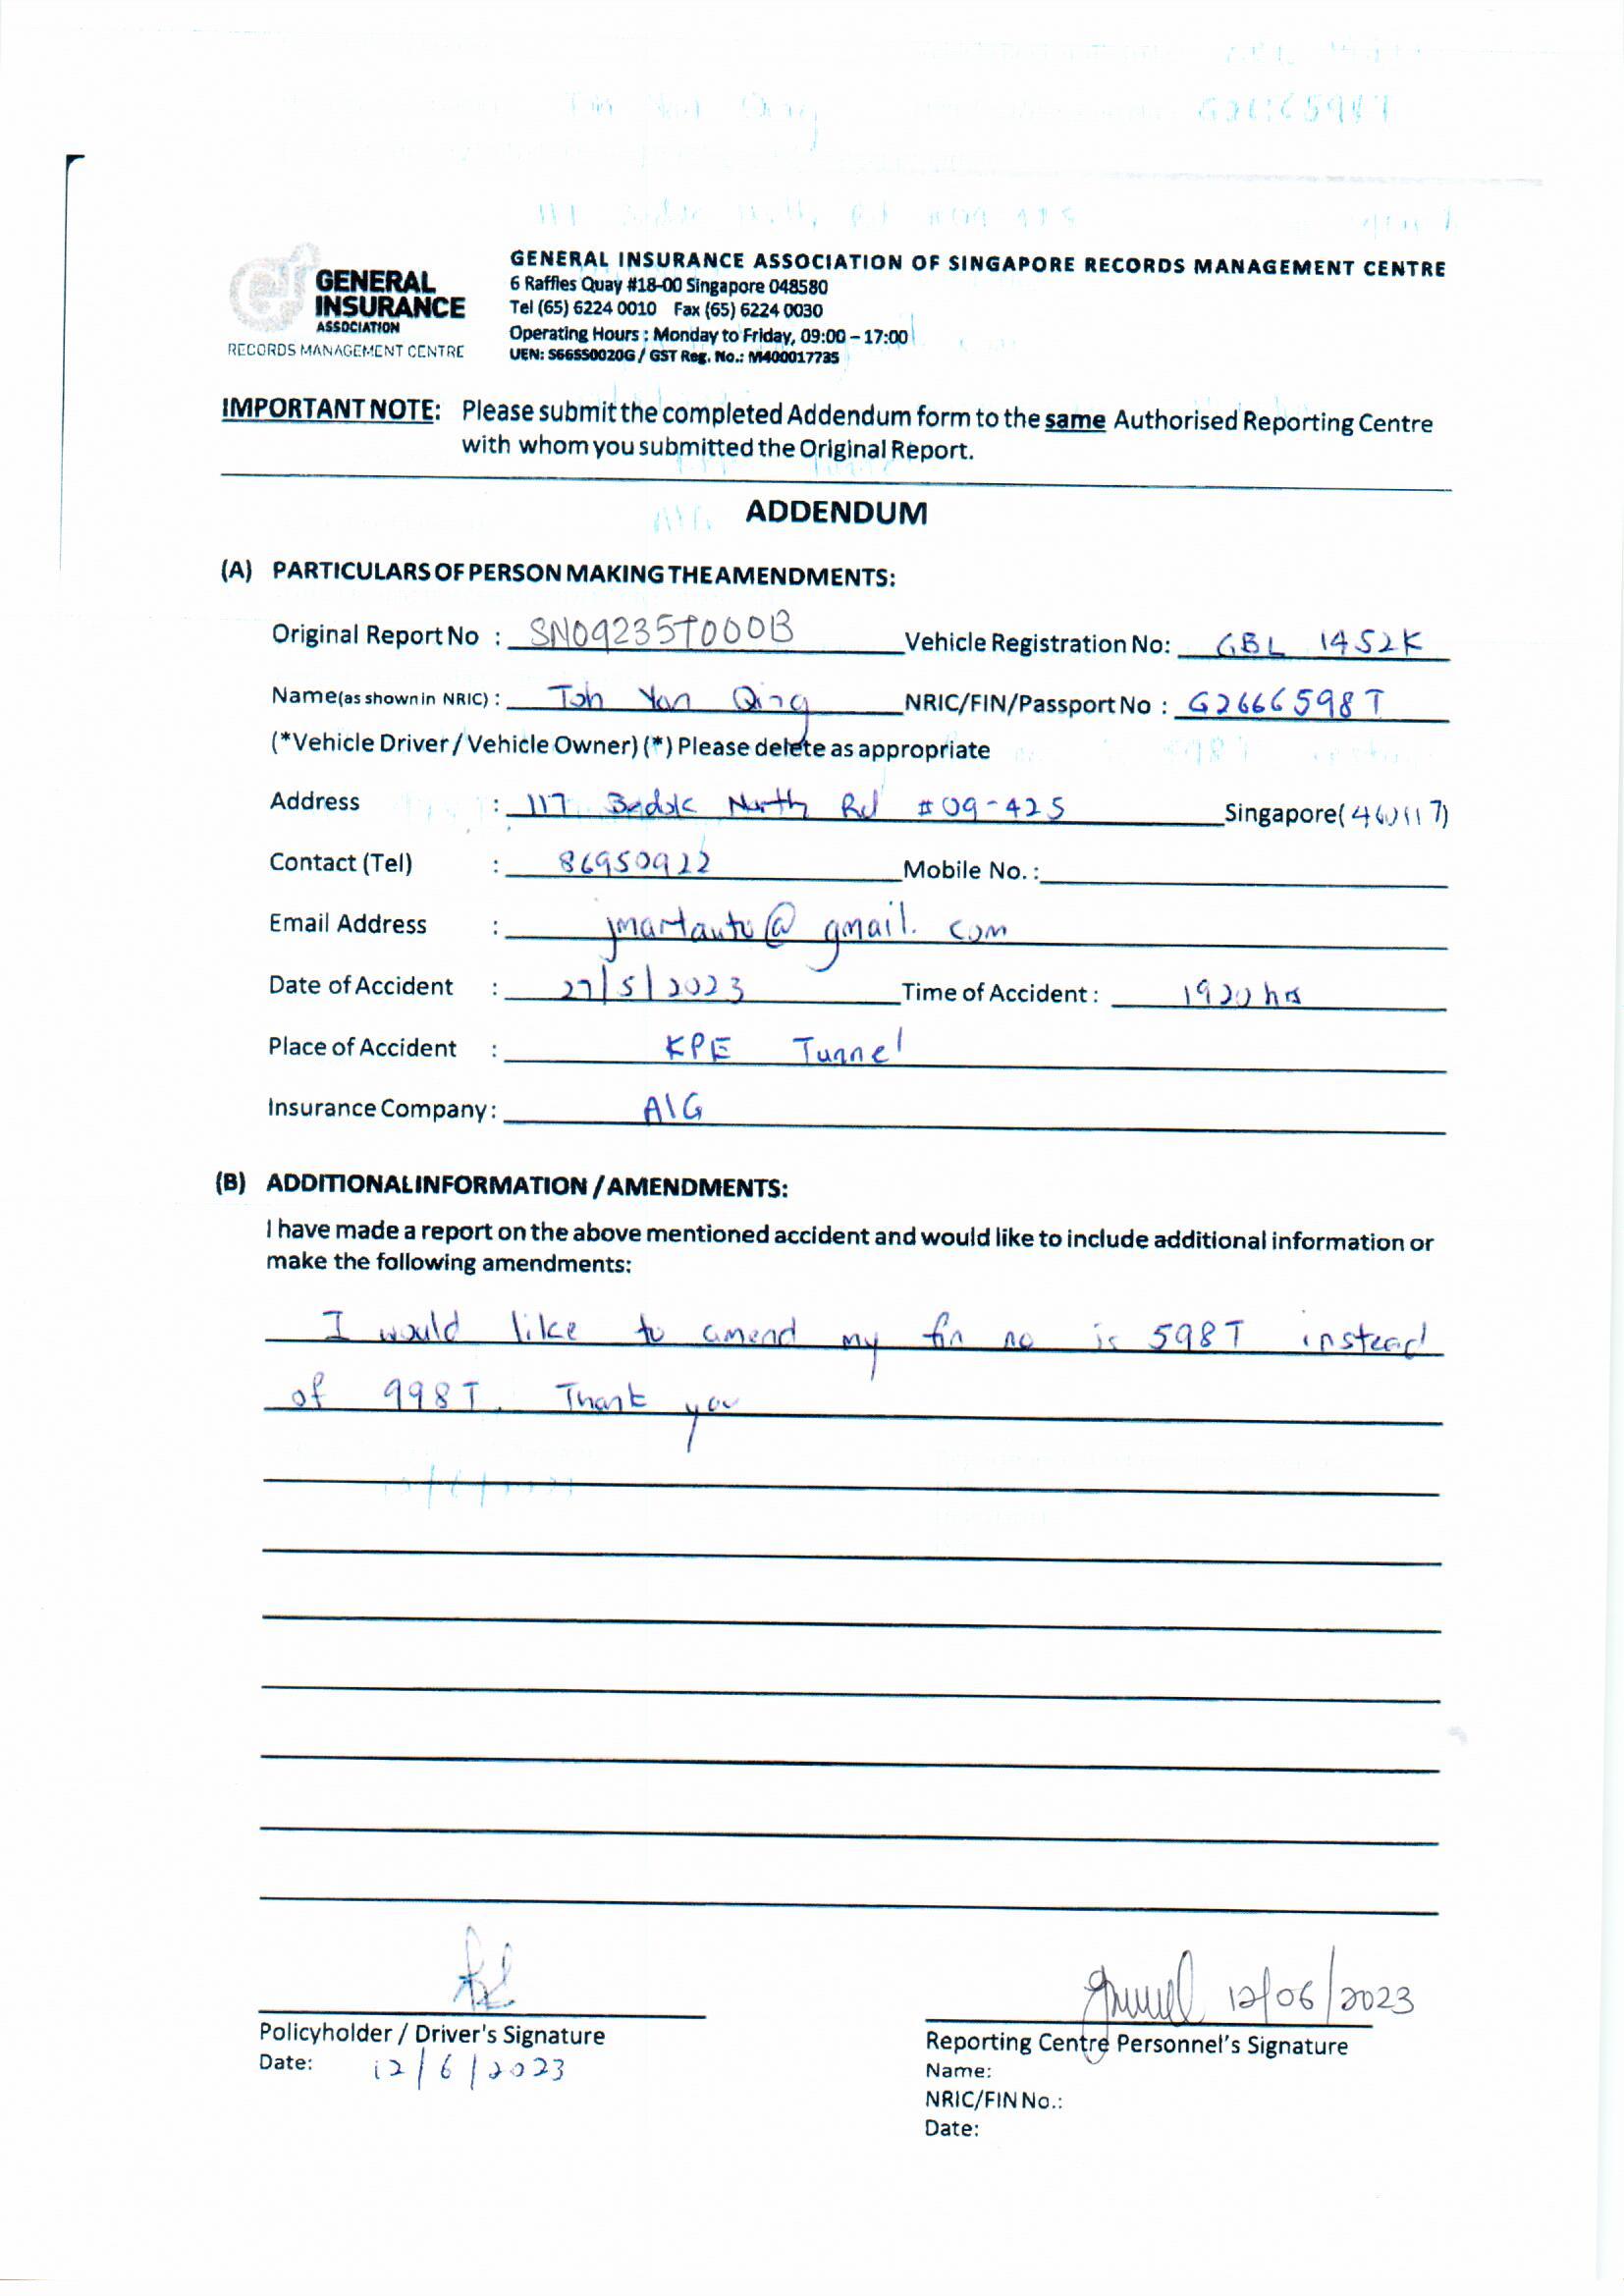 GENERAL
INSURANCE
ASSOCIATION
RECORDS MANAGEMENT CENTRE
GENERAL INSURANCE ASSOCIATION OF SINGAPORE RECORDS MANAGEMENT CENTRE
6 Raffles Quay #18-00 Singapore 048580
Tel (65) 6224 0010 Fax (65) 6224 0030
Operating Hours : Monday to Friday, 09:00 – 17:00
UEN: S66SS0020G / GST Reg. No.: M400017735
IMPORTANT NOTE: Please submit the completed Addendum form to the same Authorised Reporting Centre
with whom you submitted the Original Report.
ADDENDUM
(A) PARTICULARS OF PERSON MAKING THE AMENDMENTS:
Original Report No : SN09235T000B Vehicle Registration No: GBL 1452K
Name(as shown in NRIC) : Toh Yan Qing NRIC/FIN/Passport No : G2666598T
(*Vehicle Driver / Vehicle Owner) (*) Please delete as appropriate
Address : 117 Bedok North Rd #09-425 Singapore(460117)
Contact (Tel) : 86950922 Mobile No. :
Email Address : jmartauto@gmail.com
Date of Accident : 27/5/2023 Time of Accident : 1920 hrs
Place of Accident : KPE Tunnel
Insurance Company : AIG
(B) ADDITIONAL INFORMATION / AMENDMENTS:
I have made a report on the above mentioned accident and would like to include additional information or
make the following amendments:
I would like to amend my fin no is 598T instead
of 998T. Thank you
12/06/2023
Policyholder / Driver's Signature Reporting Centre Personnel's Signature
Date: 12/6/2023 Name:
NRIC/FIN No.:
Date: